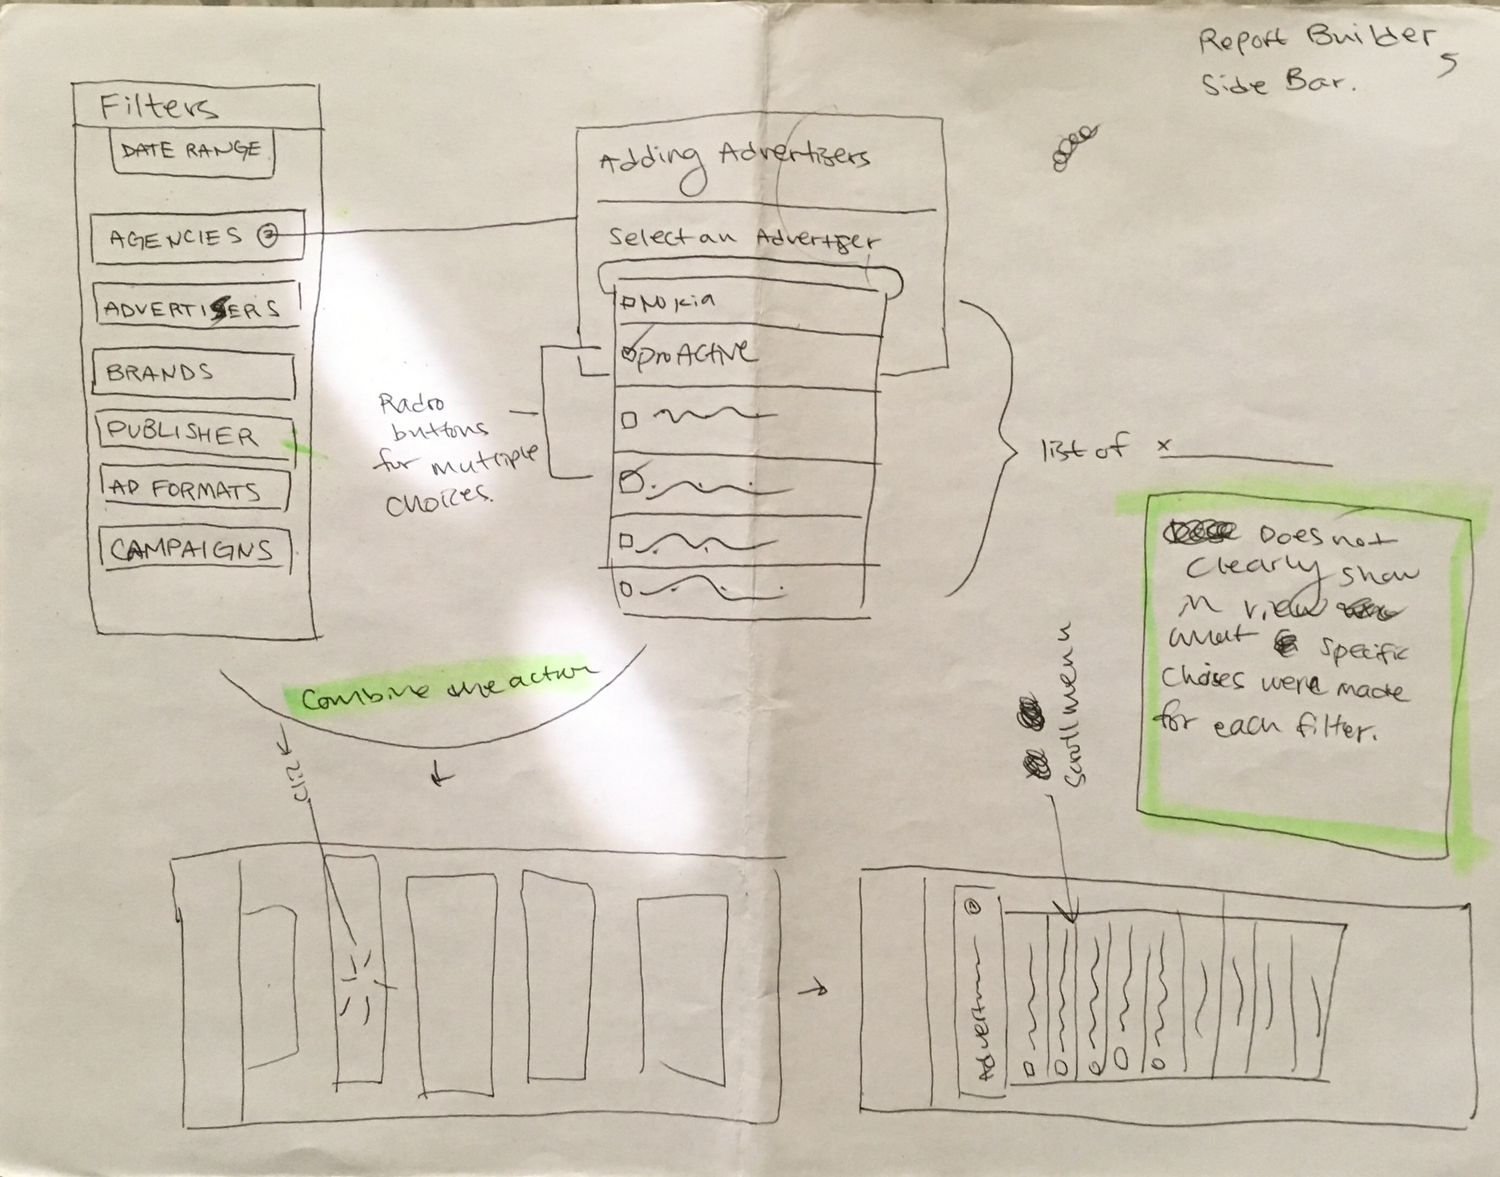 Report Builder
Side Bar.
Filters
DATE RANGE
AGENCIES
ADVERTISERS
BRANDS
PUBLISHER
AD FORMATS
CAMPAIGNS
Adding Advertizers
Select an Advertiser
Nokia
proActive
Radio
buttons
for multiple
choices.
list of x
Does not
Clearly show
in view
what specific
choises were made
for each filter.
Combine the action
click
Scroll menu